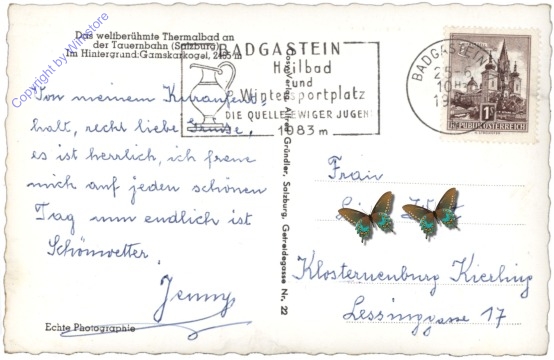 Das weltberühmte Thermalbad an
der Tauernbahn (Salzburg)
Im Hintergrund: Gamskarkogel, 2465 m
copyright by Winstore
BADGASTEIN
Heilbad
und
Wintersportplatz
DIE QUELLE EWIGER JUGEND
1083 m
BADGASTEIN
1 S
REPUBLIK ÖSTERREICH
Von meinem Kuraufent-
halt, recht liebe Grüsse,
es ist herrlich, ich freue
mich auf jeden schönen
Tag nun endlich ist
Schönwetter.
Jenny
Echte Photographie
Verlag Alfred Gründler, Salzburg, Getreidegasse Nr. 22
Frau
Klosterneuburg Kierling
Lessinggasse 17